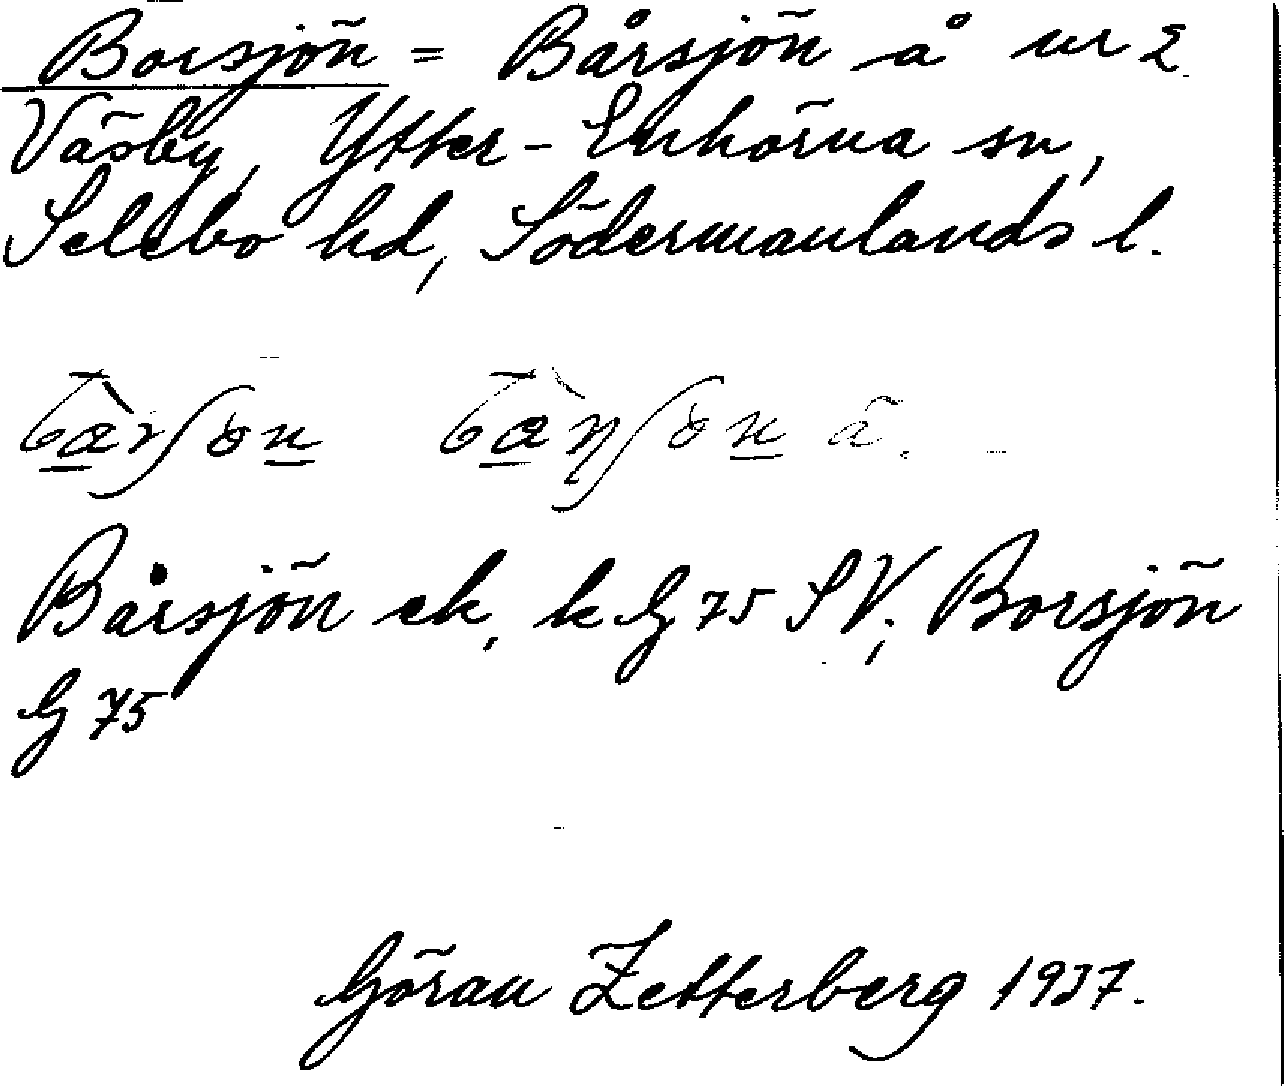 Borsjön = Bårsjön å nr 2
Väsby, Ytter-Enhörna sn,
Selebo hd, Södermanlands l.
Bårsjön ek, k G 75 SV; Borsjön
G 75
Göran Zetterberg 1937.